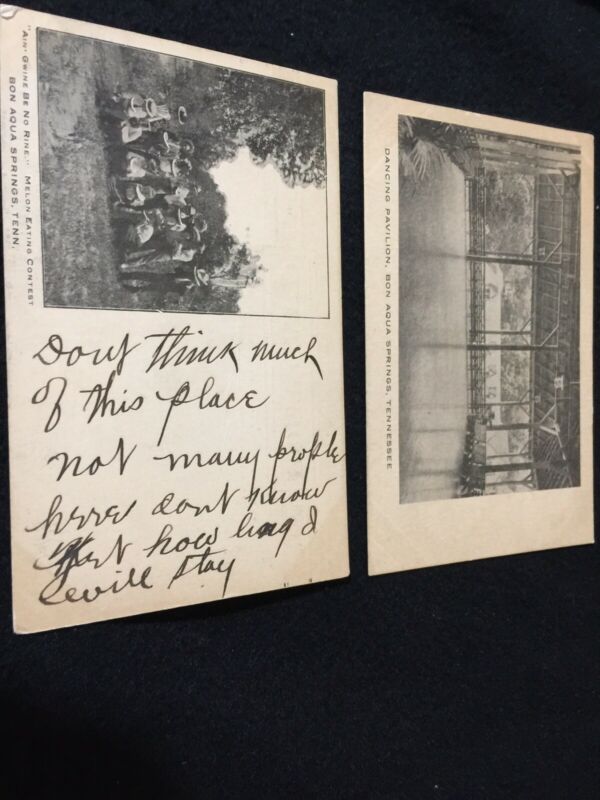 "AIN' GWINE BE NO RINE." MELON EATING CONTEST
BON AQUA SPRINGS, TENN.
Dont think much
of this place
not many people
here dont know
yet how long I
will stay
DANCING PAVILION, BON AQUA SPRINGS, TENNESSEE